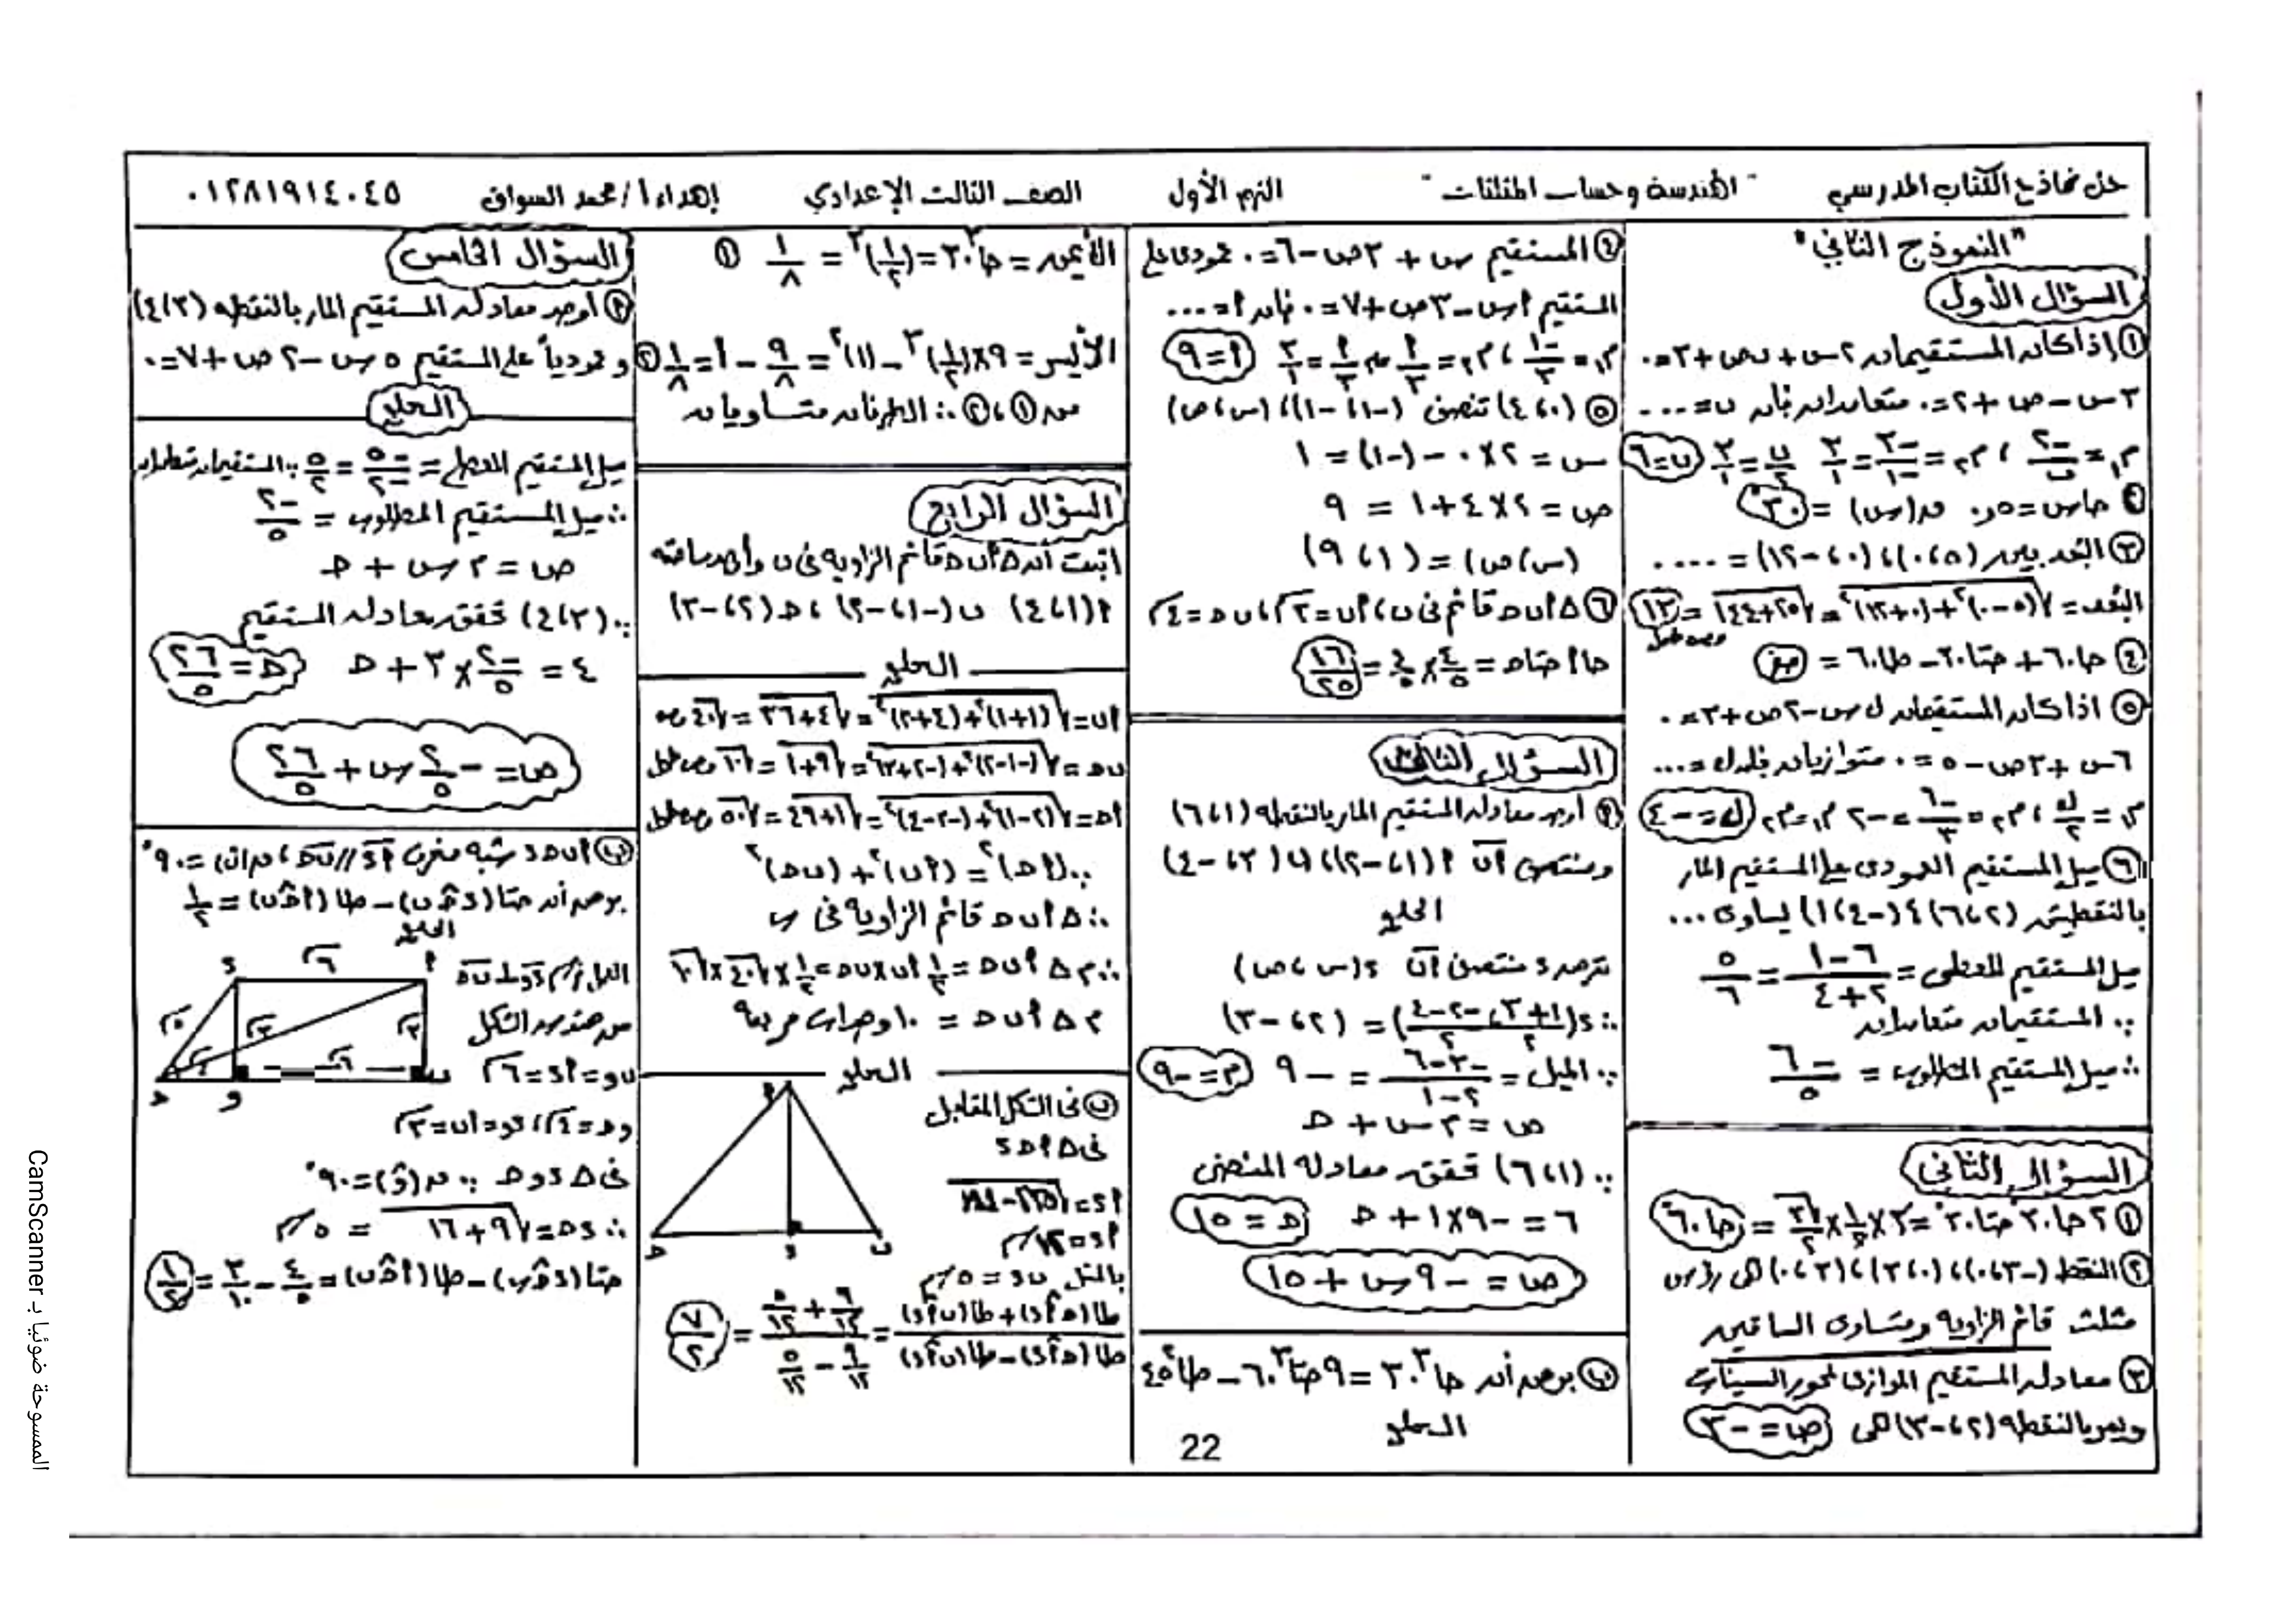 حل نماذج الكتاب المدرسي "الهندسة وحساب المثلثات" الترم الأول الصف الثالث الإعدادي إهداء أ/ محمد السواق ٠١٢٨١٩١٤٠٤٥
"النموذج الثاني"
السؤال الأول
① إذا كان المستقيمان ٢س + ن ص + ٣ = ٠
٣س - ص + ٢ = ٠ متعامدان فإن ن = ...
م١ = -٢/ن ، م٢ = -٣/-١ = ٣/١ ن/٢ = ٣/١ ن = ٦
② جاس = ٥ر٠ ق(س) = ٣٠°
③ البعد بين (٥، ٠)، (٠، -١٢) = ....
البعد = √((٥-٠)² + (٠+١٢)²) = √(٢٥+١٤٤) = ١٣ وحدة طول
④ جا٦٠ + جتا٣٠ - طا٦٠ = صفر
⑤ اذا كان المستقيمان ك س - ٢ص + ٣ = ٠
٦س + ٣ص - ٥ = ٠ متوازيان فإن ك = ...
م١ = ك/٢ ، م٢ = -٦/٣ = -٢ م١ = م٢ ك = -٤
⑥ ميل المستقيم العمودى على المستقيم المار
بالنقطتين (٢، ٦)، (-٤، ١) يساوى ...
ميل المستقيم المعطى = ٦-١/٢+٤ = ٥/٦
∵ المستقيمان متعامدان
∴ ميل المستقيم المطلوب = -٦/٥
السؤال الثانى
① ٢جا٣٠° جتا٣٠° = ٢×١/٢×√٣/٢ = جا٦٠°
② النقط (-٣، ٠)، (٠، ٣)، (٣، ٠) هى رؤوس
مثلث قائم الزاوية ومتساوى الساقين
③ معادلة المستقيم الموازى لمحور السينات
ويمر بالنقطة (٢، -٣) هى ص = -٣
④ المستقيم س + ٣ص - ٦ = ٠ عمودى على
المستقيم أس - ٣ص + ٧ = ٠ فإن أ = ...
م١ = -١/٣ ، م٢ = أ/٣ ∴ أ/٣ = ٣/١ أ = ٩
⑤ (٠، ٤) تنصف (-١، -١)، (س، ص)
س = ٢×٠ - (-١) = ١
ص = ٢×٤ + ١ = ٩
(س، ص) = (١، ٩)
⑥ Δ أ ب ح قائم فى ب، أب = ٣، ب ح = ٤
جا أ جتا ح = ٤/٥ × ٤/٥ = ١٦/٢٥
السؤال الثالث
أ أوجد معادلة المستقيم المار بالنقطة (١، ٦)
ومنتصف أب أ (١، -٢)، ب (٣، -٤)
الحل
نفرض د منتصف أب د (س، ص)
∴ د (١+٣/٢، -٢-٤/٢) = (٢، -٣)
∵ الميل = -٣-٦/٢-١ = -٩ م = -٩
ص = م س + ح
∵ (١، ٦) تحقق معادلة المنصف
٦ = -٩×١ + ح ح = ١٥
ص = -٩س + ١٥
ب برهن أن جا³٣٠ = ٩جتا³٦٠ - طا²٤٥
الحل
الأيمن = جا³٣٠ = (١/٢)³ = ١/٨ ①
الأيسر = ٩×(١/٢)³ - (١)² = ٩/٨ - ١ = ١/٨ ②
من ①، ② ∴ الطرفان متساويان
السؤال الرابع
اثبت أن Δ أ ب ح قائم الزاوية فى ب وأوجد مساحته
أ (١، ٤) ب (-١، -٢)، ح (٢، -٣)
الحل
أب = √((١+١)² + (٤+٢)²) = √(٤+٣٦) = √٤٠
ب ح = √((-١-٢)² + (-٢+٣)²) = √(٩+١) = √١٠ وحدة طول
أح = √((٢-١)² + (-٣-٤)²) = √(١+٤٩) = √٥٠ وحدة طول
∵ (أح)² = (أب)² + (ب ح)²
∴ Δ أ ب ح قائم الزاوية فى ب
∴ م Δ أ ب ح = ١/٢ أب × ب ح = ١/٢ × √٤٠ × √١٠
م Δ أ ب ح = ١٠ وحدات مربعة
الحل
ب فى الشكل المقابل
فى Δ أ ح د
أد = ١٢سم
بالمثل ب د = ٥سم
طا(ح أ د) + طا(ب أ د) / طا(ح أ د) - طا(ب أ د) = ٩/١٢ + ٥/١٢ / ٩/١٢ - ٥/١٢ = ٧/٢
أ
ح د ب
السؤال الخامس
أ أوجد معادلة المستقيم المار بالنقطة (٣، ٤)
وعمودياً على المستقيم ٥س - ٢ص + ٧ = ٠
الحل
ميل المستقيم المعطى = -٥/-٢ = ٥/٢ ∵ المستقيمان متعامدان
∴ ميل المستقيم المطلوب = -٢/٥
ص = م س + ح
∵ (٣، ٤) تحقق معادلة المستقيم
٤ = -٢/٥ × ٣ + ح ح = ٢٦/٥
ص = -٢/٥ س + ٢٦/٥
ب أ ب ح د شبه منحرف أد // ب ح، ق(ب) = ٩٠°
برهن أن جتا(د ح ب) - طا(أ ح ب) = ١/٢
الحل
العمل نرسم دو ⊥ ب ح
من هندسة الشكل
ب و = أد = ٦
و ح = ٤، دو = أب = ٣
فى Δ د و ح ∵ ق(و) = ٩٠°
∴ د ح = √(٩+١٦) = ٥سم
جتا(د ح ب) - طا(أ ح ب) = ٤/٥ - ٣/١٠ = ١/٢
22
الممسوحة ضوئيا بـ CamScanner